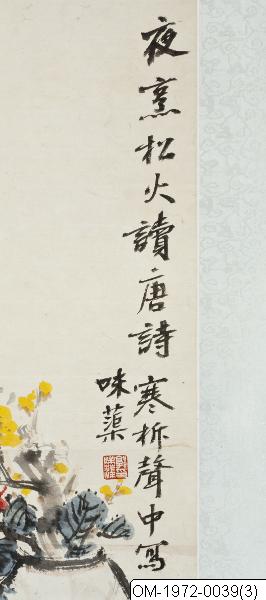 夜烹松火讀唐詩寒柝聲中寫
味蕖
OM-1972-0039(3)